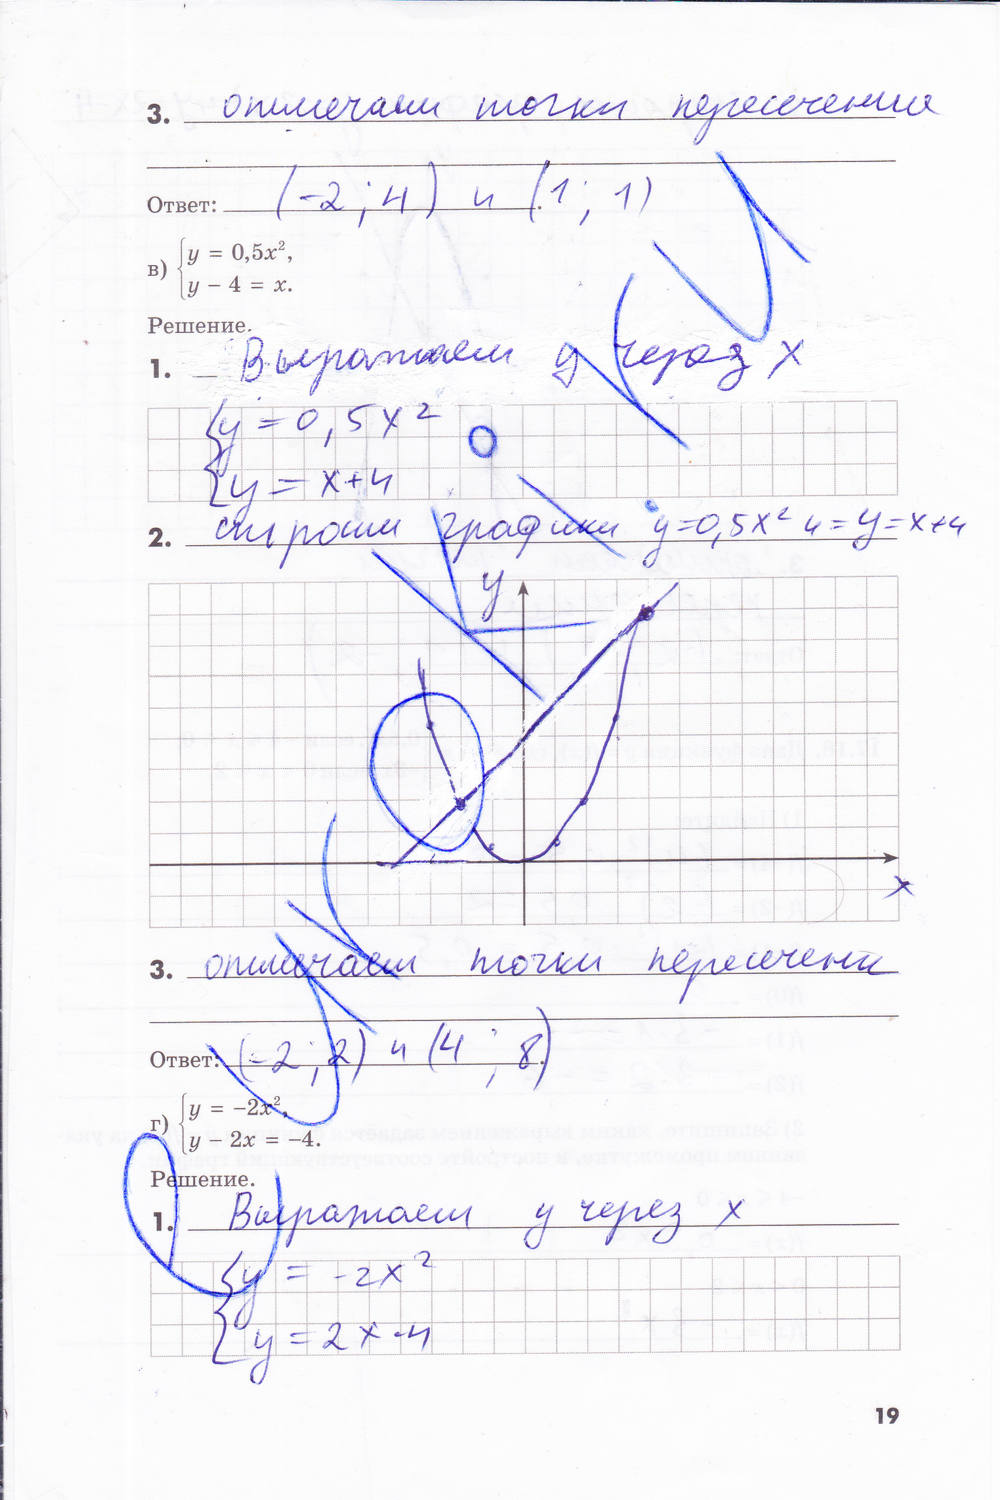 3. отмечаем точки пересечения
Ответ: (-2; 4) и (1; 1).
в) { y = 0,5x²,
y − 4 = x.
Решение.
1. Выражаем y через x
{ y = 0,5x²
y = x+4
2. строим графики y=0,5x² и = y=x+4
y
x
3. отмечаем точки пересечени
Ответ: (-2; 2) и (4; 8).
г) { y = −2x²,
y − 2x = −4.
Решение.
1. Выражаем y через x
{ y = -2x²
y = 2x-4
19